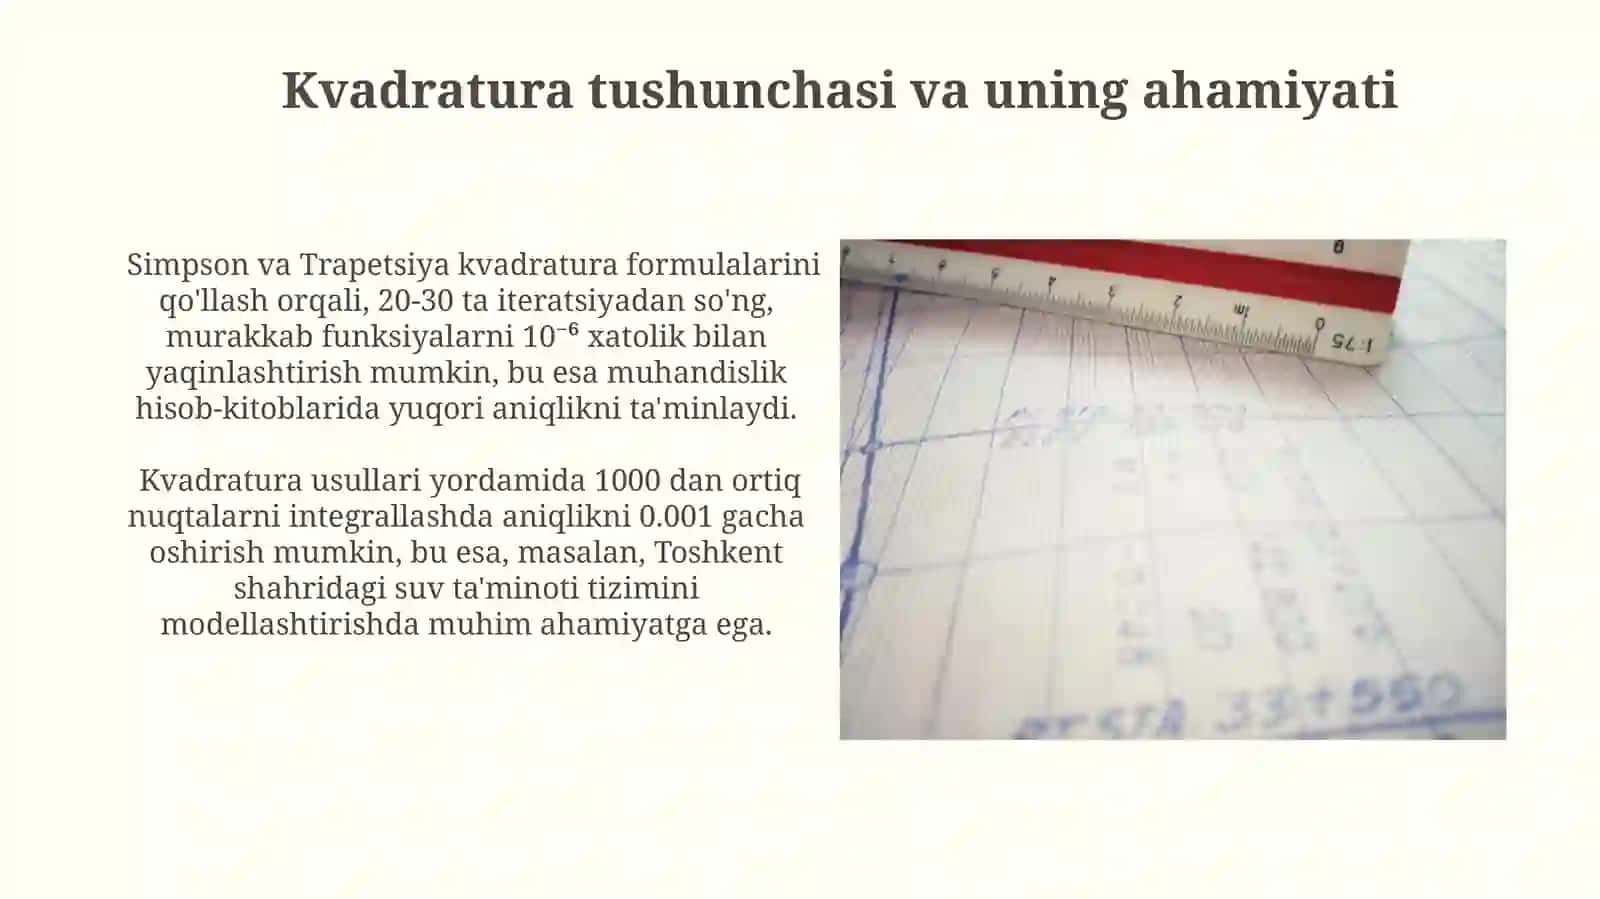 Kvadratura tushunchasi va uning ahamiyati
Simpson va Trapetsiya kvadratura formulalarini
qo'llash orqali, 20-30 ta iteratsiyadan so'ng,
murakkab funksiyalarni 10⁻⁶ xatolik bilan
yaqinlashtirish mumkin, bu esa muhandislik
hisob-kitoblarida yuqori aniqlikni ta'minlaydi.
Kvadratura usullari yordamida 1000 dan ortiq
nuqtalarni integrallashda aniqlikni 0.001 gacha
oshirish mumkin, bu esa, masalan, Toshkent
shahridagi suv ta'minoti tizimini
modellashtirishda muhim ahamiyatga ega.
5 4 3 2 1m 0 1:75
33+550